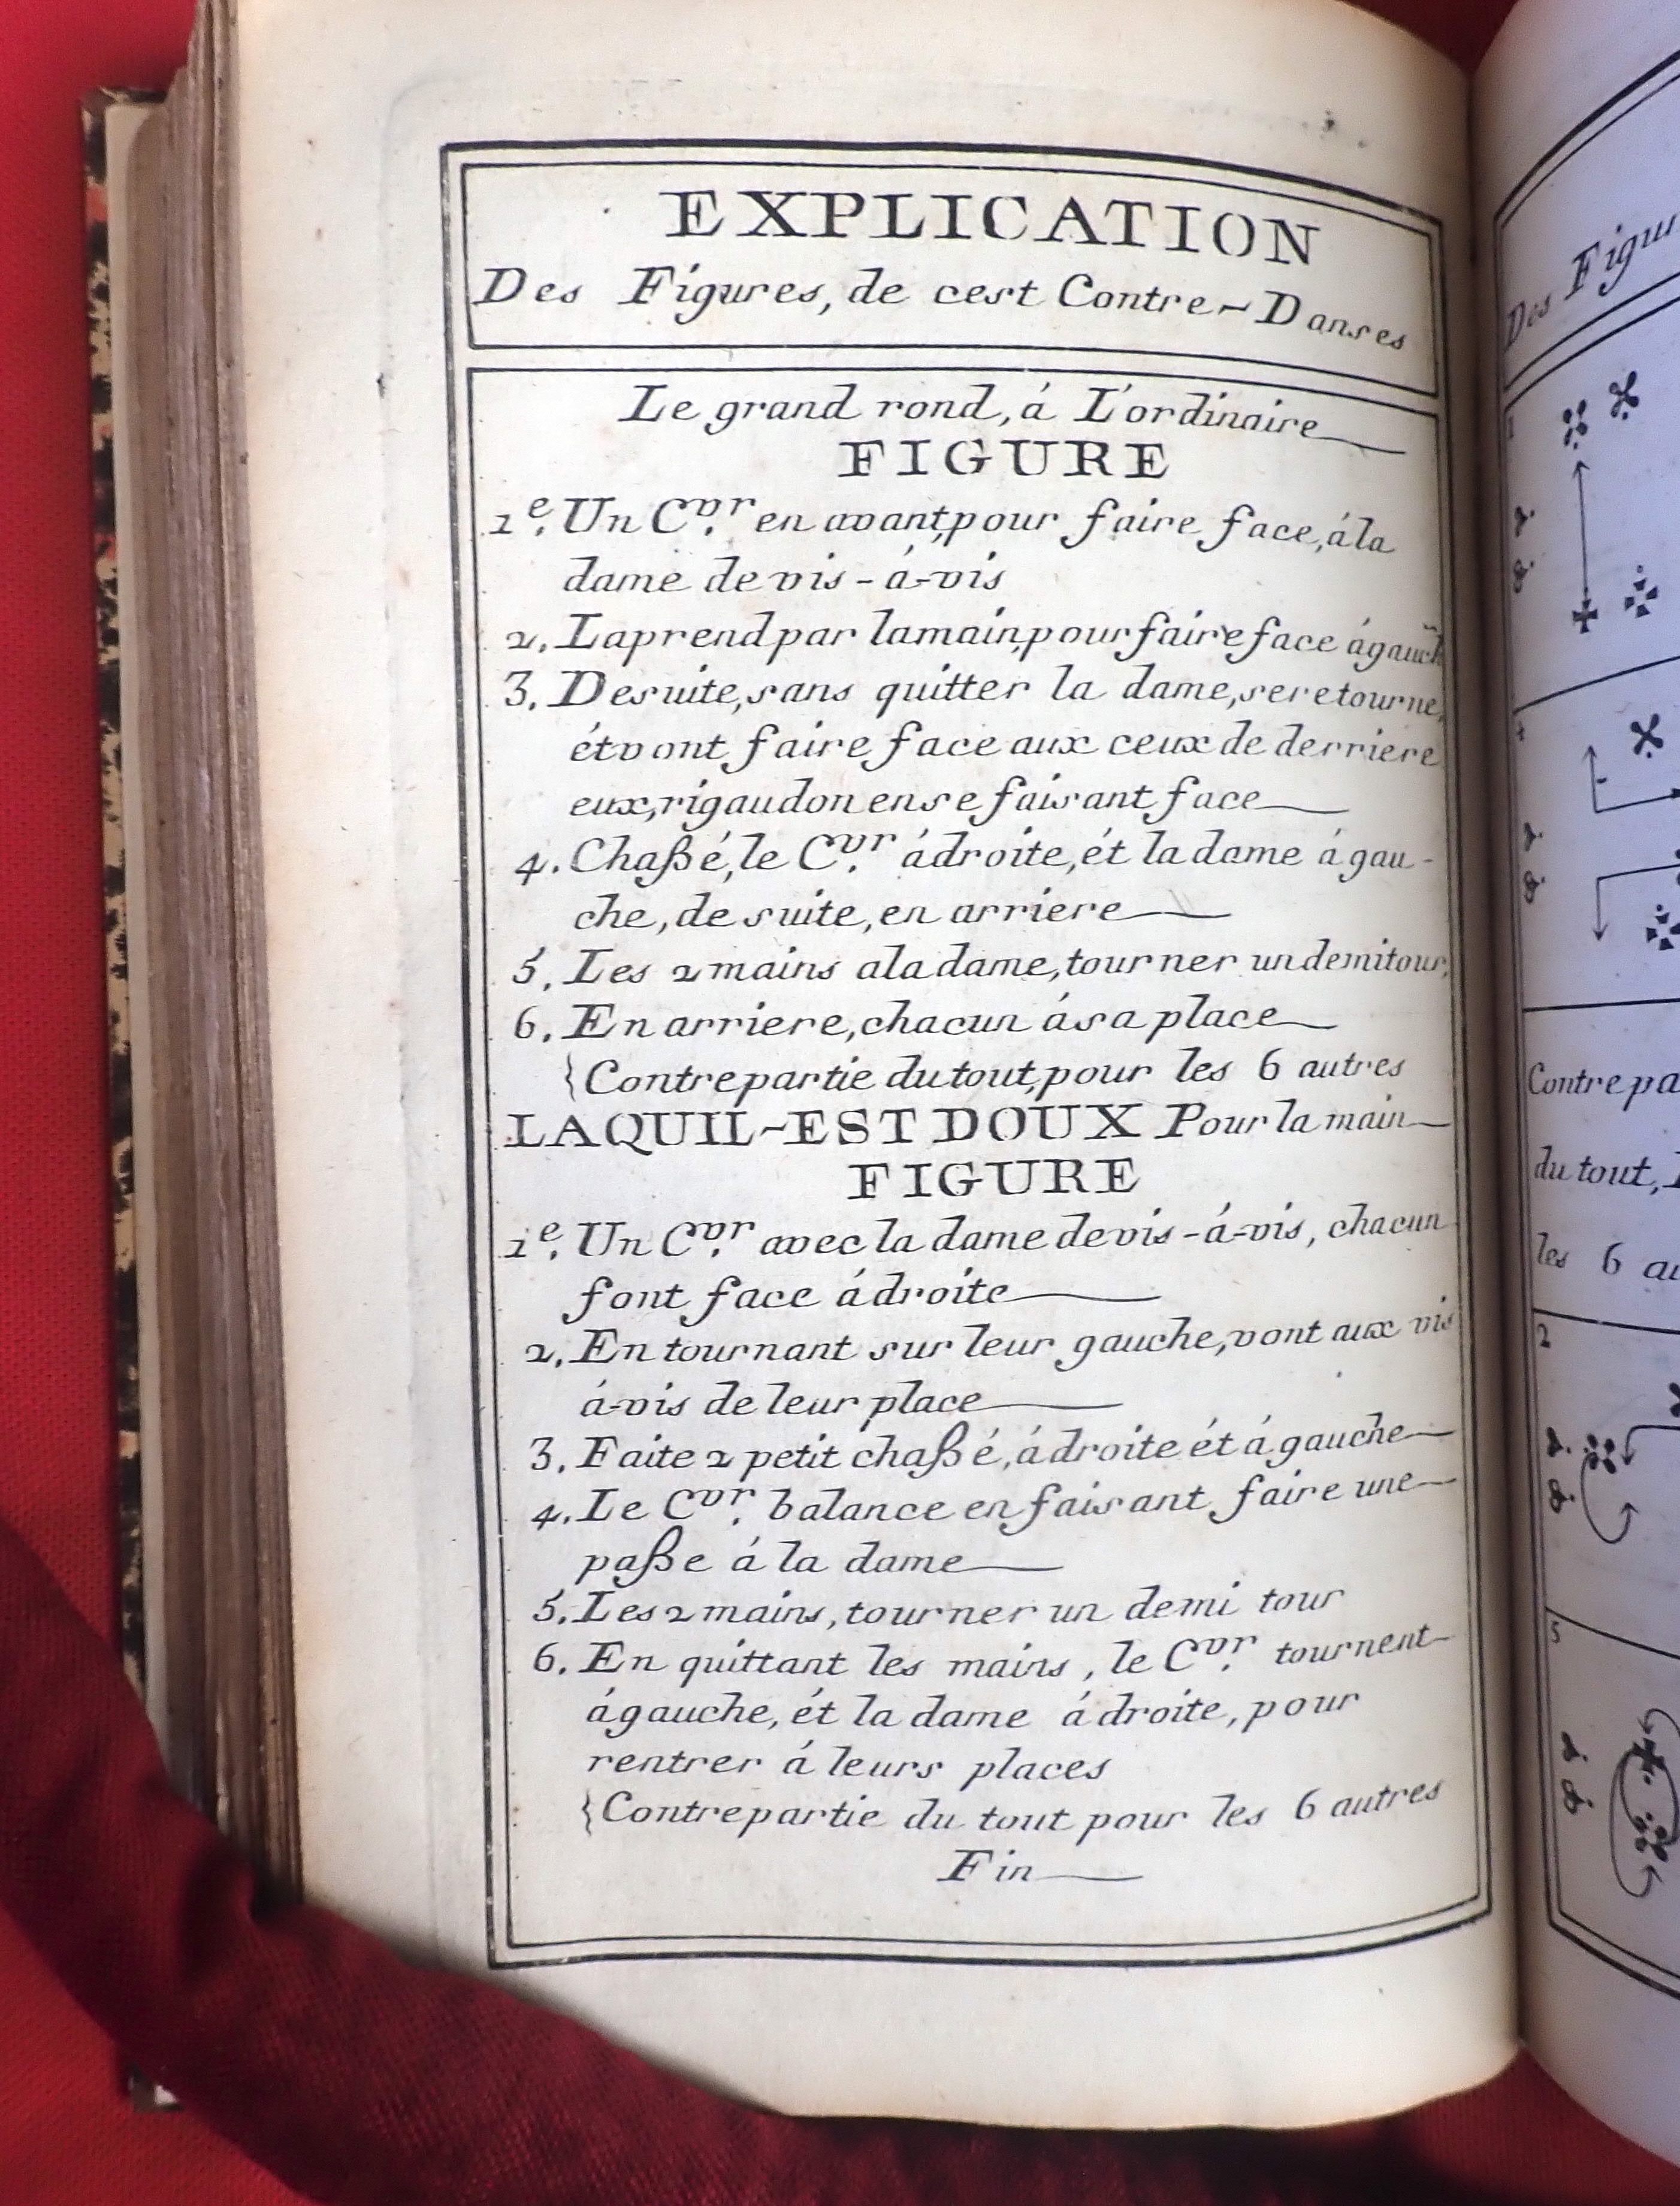 EXPLICATION
Des Figures, de cest Contre-Danses
Le grand rond, á L'ordinaire
FIGURE
1e. Un Cvr. en avant, pour faire face, á la
dame de vis-á-vis
2. La prend par la main, pour faire face á gauch
3. De suite, sans quitter la dame, se retourne,
ét vont faire face aux ceux de derriere
eux, rigaudon en se faisant face
4. Chaßé, le Cvr. á droite, ét la dame á gau-
che, de suite, en arriere
5. Les 2 mains a la dame, tourner un demi tour,
6. En arriere, chacun á sa place
{Contrepartie du tout, pour les 6 autres
LAQUIL-EST DOUX Pour la main
FIGURE
1e. Un Cvr. avec la dame de vis-á-vis, chacun
font face á droite
2. En tournant sur leur gauche, vont aux vis
á-vis de leur place
3. Faite 2 petit chaßé, á droite ét á gauche
4. Le Cvr. balance en faisant faire une
paße á la dame
5. Les 2 mains, tourner un demi tour
6. En quittant les mains, le Cvr. tournent
á gauche, ét la dame á droite, pour
rentrer á leurs places
{Contrepartie du tout pour les 6 autres
Fin
Des Figu
1
4
Contrepa
du tout,
les 6 au
2
5